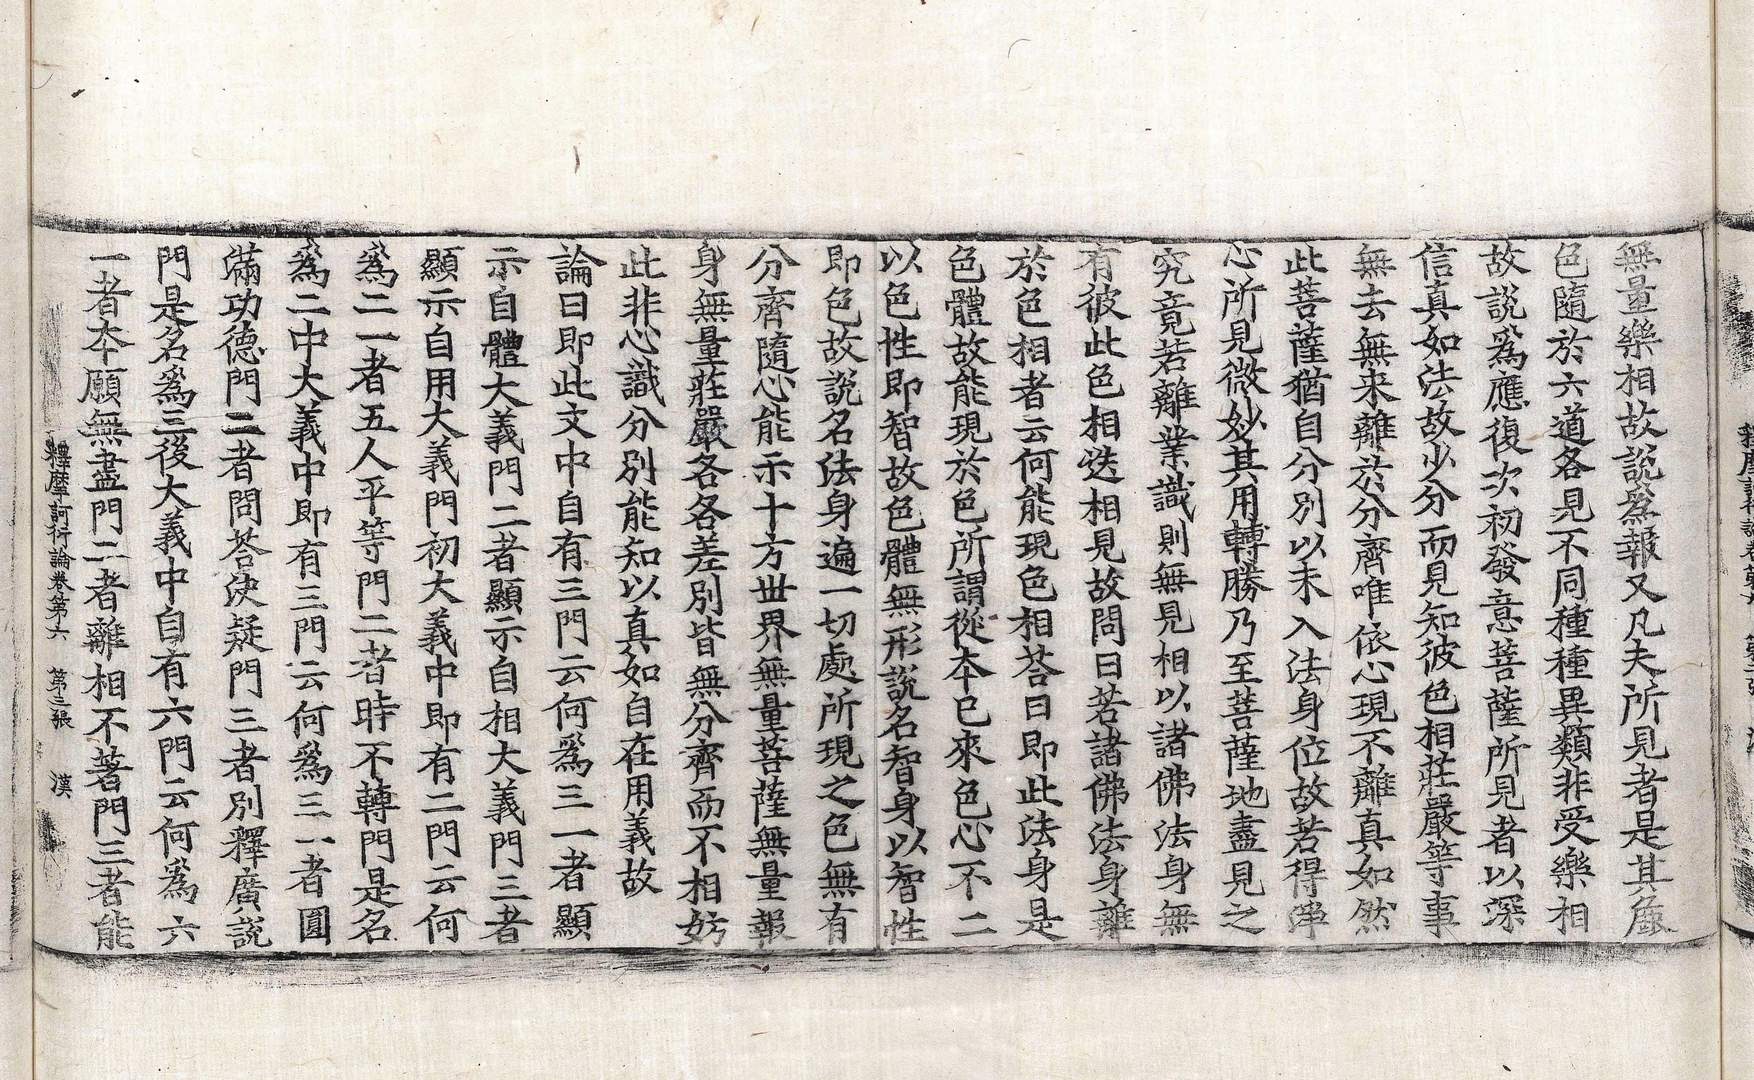 無量樂相故說爲報又凡夫所見者是其麁
色隨於六道各見不同種種異類非受樂相
故說爲應復次初發意菩薩所見者以深
信真如法故少分而見知彼色相莊嚴等事
無去無来離於分齊唯依心現不離真如然
此菩薩猶自分別以未入法身位故若得淨
心所見微妙其用轉勝乃至菩薩地盡見之
究竟若離業識則無見相以諸佛法身無
有彼此色相迭相見故問曰若諸佛法身離
於色相者云何能現色相荅曰即此法身是
色體故能現於色所謂從本已來色心不二
以色性即智故色體無形說名智身以智性
即色故說名法身遍一切處所現之色無有
分齊隨心能示十方世界無量菩薩無量報
身無量莊嚴各各差別皆無分齊而不相妨
此非心識分別能知以真如自在用義故
論曰即此文中自有三門云何爲三一者顯
示自體大義門二者顯示自相大義門三者
顯示自用大義門初大義中即有二門云何
爲二一者五人平等門二者時不轉門是名
爲二中大義中即有三門云何爲三一者圓
滿功德門二者問荅決疑門三者別釋廣說
門是名爲三後大義中自有六門云何爲六
一者本願無盡門二者離相不著門三者能
釋摩訶衍論卷第六 第三張 漢